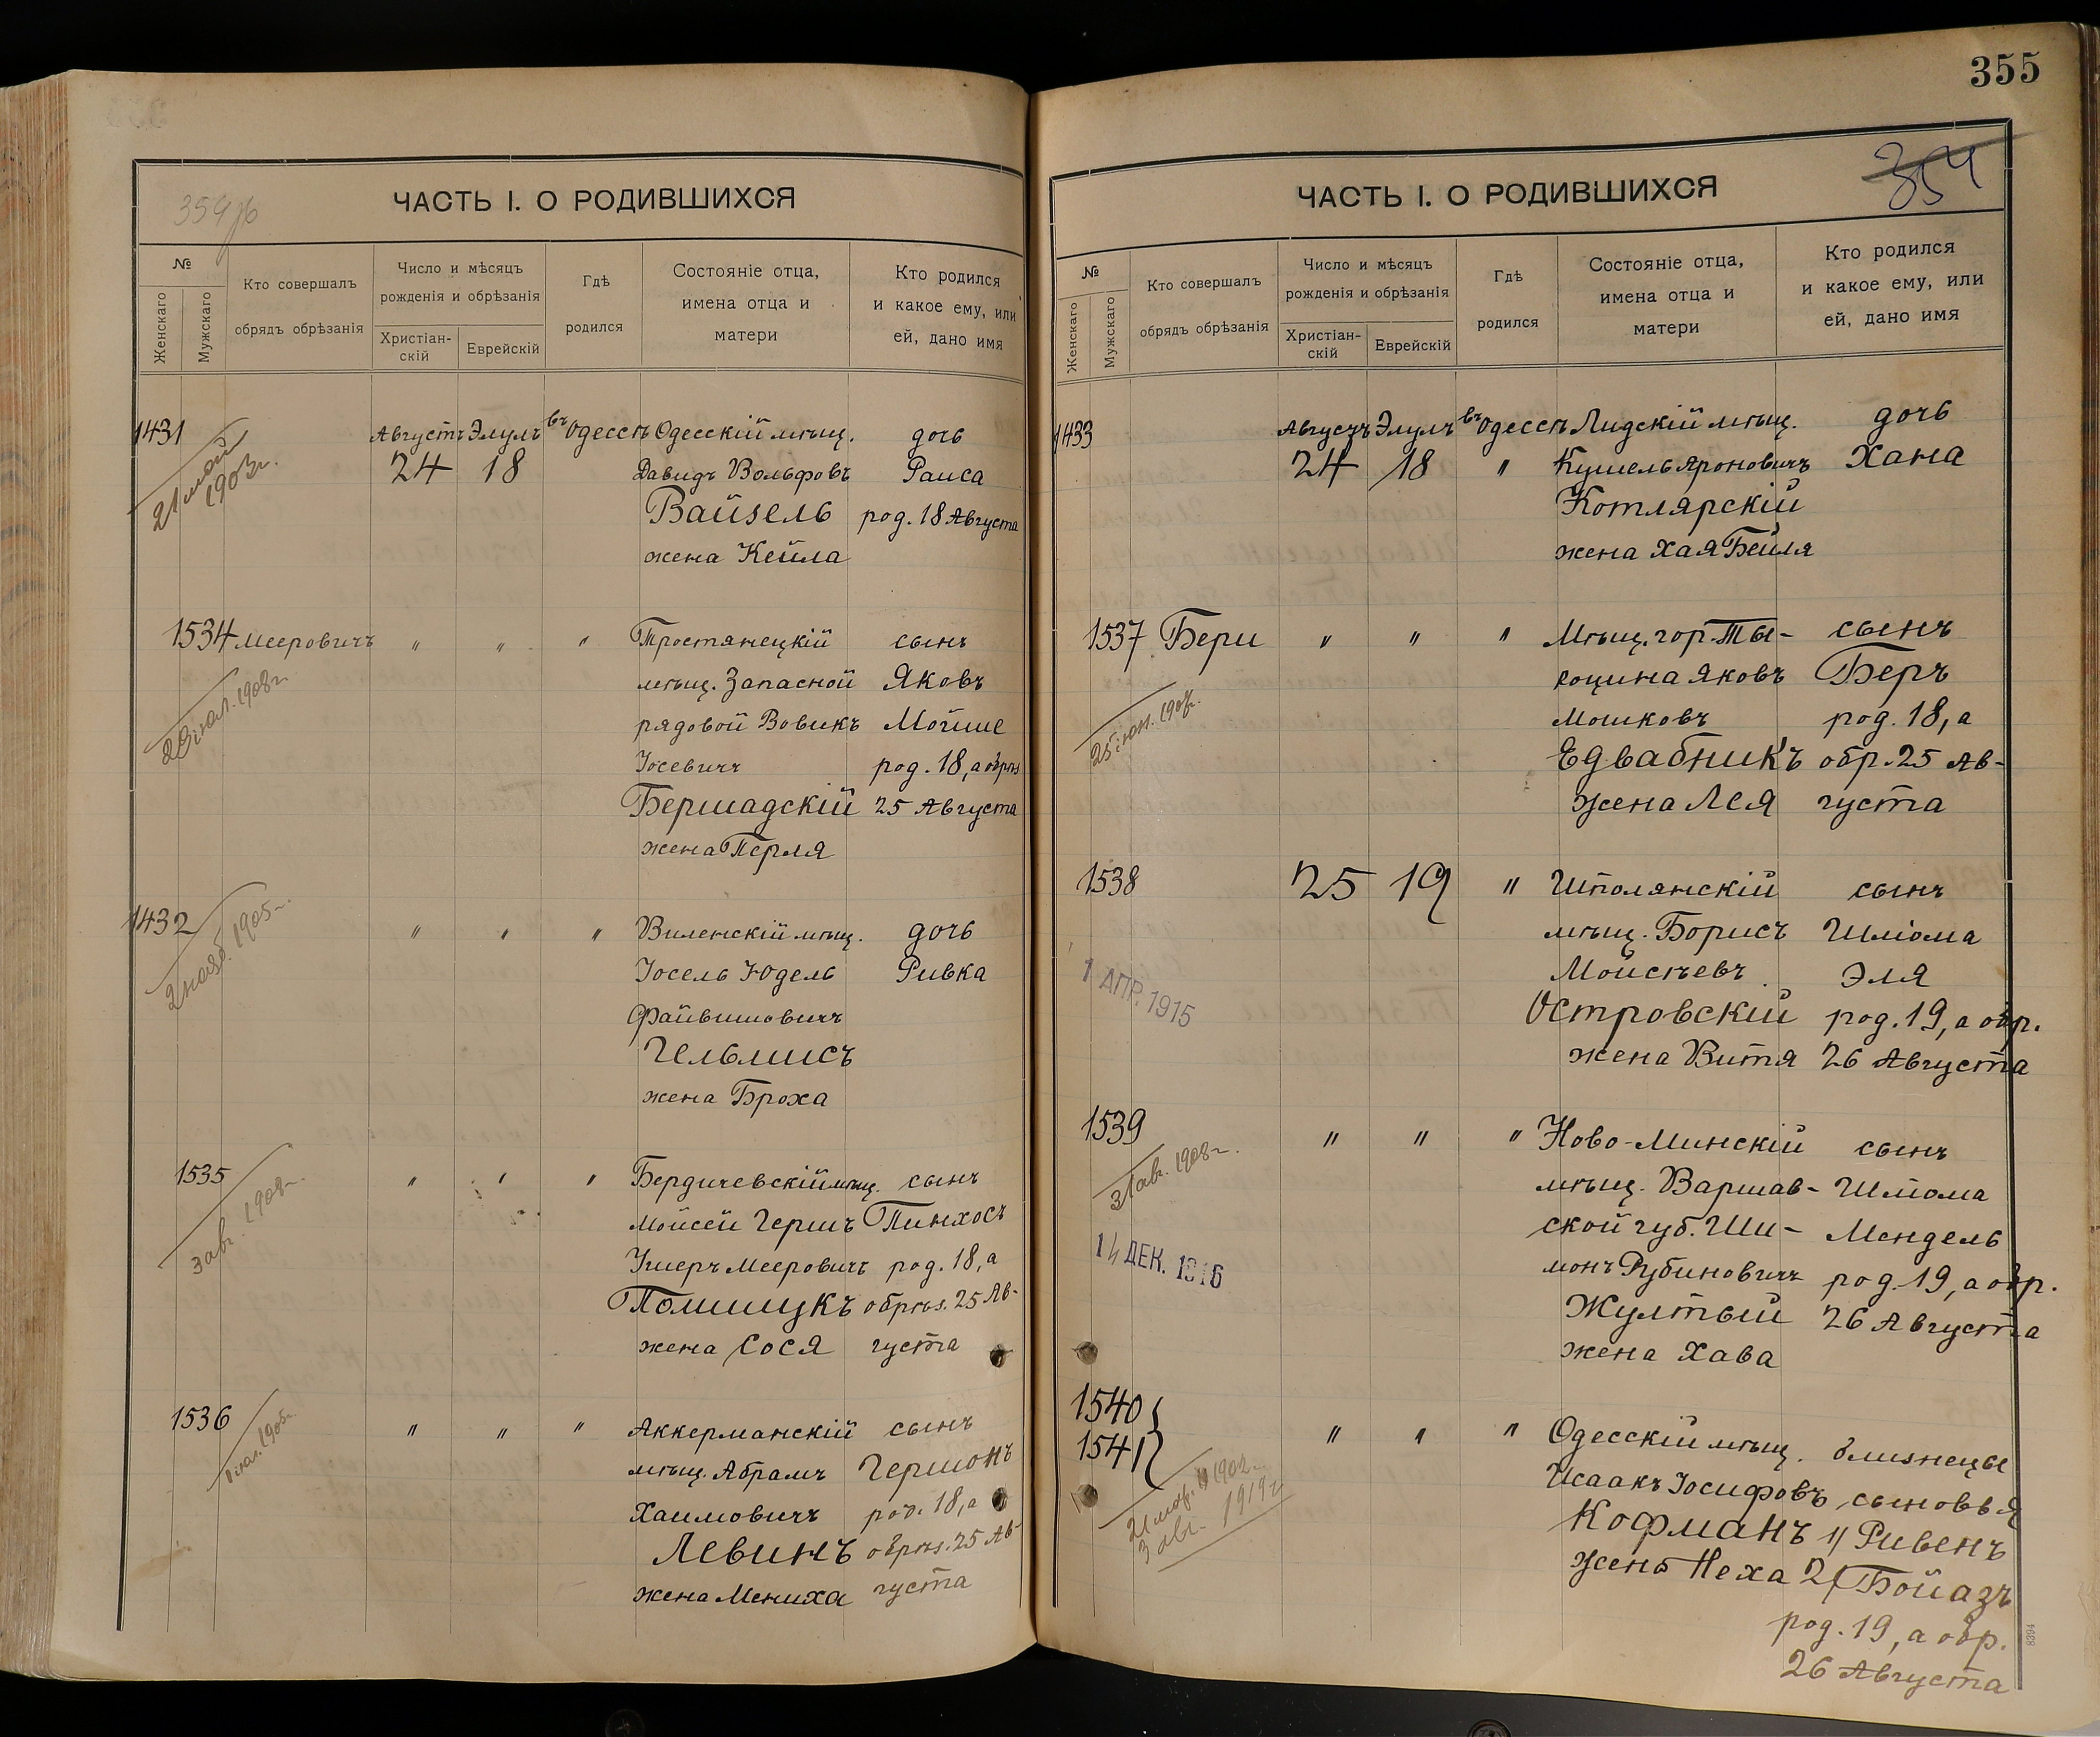 ЧАСТЬ I. О РОДИВШИХСЯ
№
Женскаго
Мужскаго
Кто совершалъ
обрядъ обрѣзанія
Число и мѣсяцъ
рожденія и обрѣзанія
Христіан-
скій
Еврейскій
Гдѣ
родился
Состояніе отца,
имена отца и
матери
Кто родился
и какое ему, или
ей, дано имя
1431 Августъ Элулъ въ Одессѣ Одесскій мѣщ. дочь
24 18 Давидъ Вольфовъ Раиса
21 мая
1903г.
Вайзель род. 18 Августа
жена Кейла
1534 Мееровичъ " " " Тростянецкій сынъ
мѣщ. Запасной Яковъ
1908г.
рядовой Вовикъ Мойше
Іосевичъ род. 18, а обрѣз
Бершадскій 25 Августа
жена Перля
1432 " " " Виленскій мѣщ. дочь
2 нояб. 1905г.
Іосель Юдель Ривка
Файвишовичъ
Гельмисъ
жена Броха
1535 " " " Бердичевскій мѣщ. сынъ
3 авг. 1908г.
Мойсей Гершъ Пинхосъ
Ушеръ Мееровичъ род. 18, а
Полищукъ обрѣз. 25 Ав-
жена Сося густа
1536 " " " Аккерманскій сынъ
мѣщ. Абрамъ Гершонъ
Хаимовичъ род. 18, а
Левинъ обрѣз. 25 Ав
жена Мениха густа
355
354
ЧАСТЬ I. О РОДИВШИХСЯ
№
Женскаго
Мужскаго
Кто совершалъ
обрядъ обрѣзанія
Число и мѣсяцъ
рожденія и обрѣзанія
Христіан-
скій
Еврейскій
Гдѣ
родился
Состояніе отца,
имена отца и
матери
Кто родился
и какое ему, или
ей, дано имя
1433 Августъ Элулъ въ Одессѣ Лидскій мѣщ. дочь
24 18 " Кушель Яроновичъ Хана
Котлярскій
жена Хая Бейля
1537 Бери " " " Мѣщ. гор. Ты- сынъ
коцина Яковъ Беръ
Мошковъ род. 18, а
Едвабникъ обр. 25 Ав-
жена Лея густа
1538 25 19 " Шполянскій сынъ
мѣщ. Борисъ Шліома
1 АПР. 1915
Мойсѣевъ Эля
Островскій род. 19, а обр.
жена Витя 26 Августа
1539 " " " Ново-Минскій сынъ
31 авг. 1908г.
мѣщ. Варшав- Шліома
ской губ. Ши- Мендель
14 ДЕК. 1916
монъ Рубиновичъ род. 19, а обр.
Жултый 26 Августа
жена Хава
1540
1541 " " " Одесскій мѣщ. близнецы
Исаакъ Іосифовъ сыновья
3 авг. 1919г
Кофманъ 1/ Ривенъ
жена Неха 2/ Бойазъ
род. 19, а обр.
26 Августа
8394